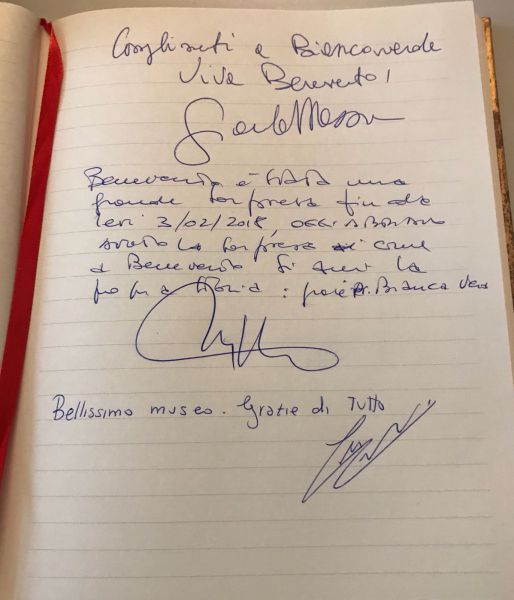 Complimenti a Biancoverde
Viva Benevento!
Benevento è STATA una
grande sorpresa fin da
ieri 3/02/2018, OGGI ABBIAMO
avuto la sorpresa di come
a Benevento si scrive la
propria storia: grazie Bianca Verde
Bellissimo museo. Grazie di Tutto